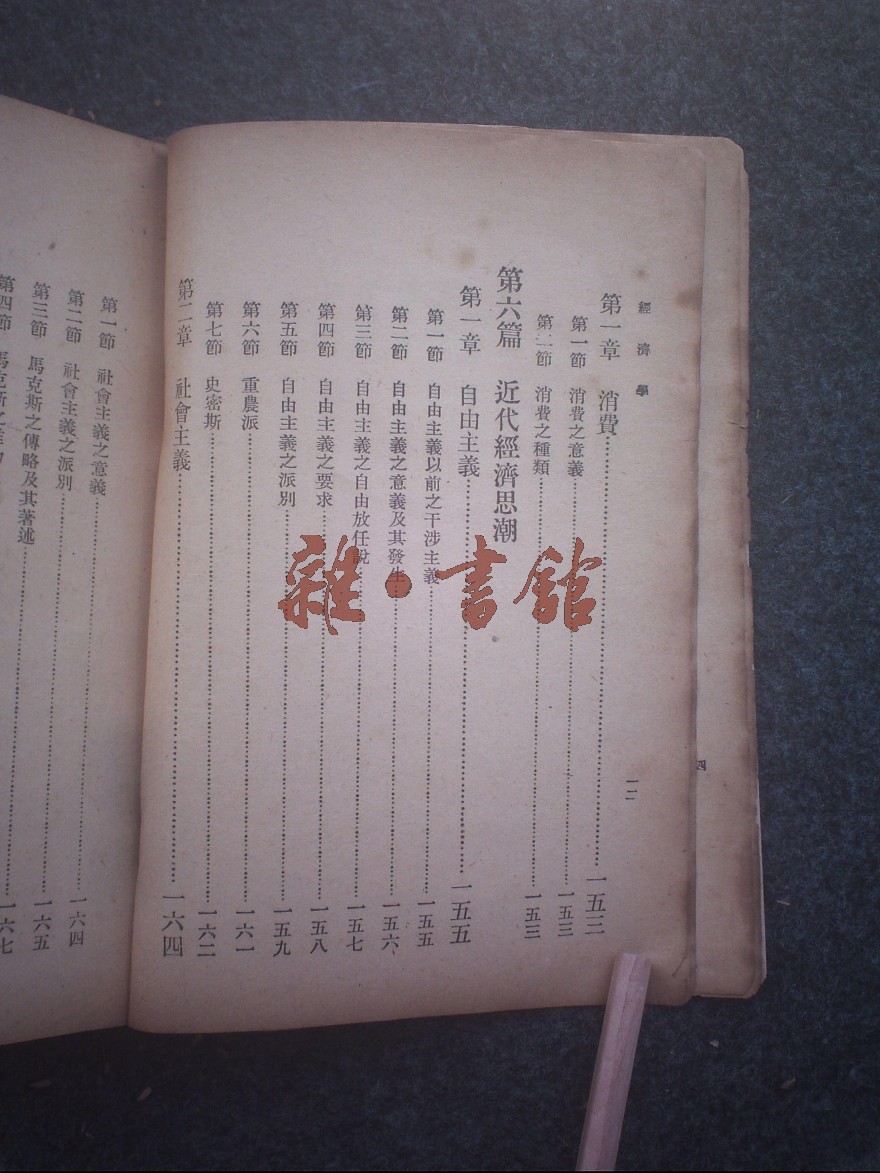 經濟學
一二
第一章 消費……一五三
第一節 消費之意義……一五三
第二節 消費之種類……一五三
第六篇 近代經濟思潮
第一章 自由主義……一五五
第一節 自由主義以前之干涉主義……一五五
第二節 自由主義之意義及其發生……一五六
第三節 自由主義之自由放任說……一五七
第四節 自由主義之要求……一五八
第五節 自由主義之派別……一五九
第六節 重農派……一六一
第七節 史密斯……一六二
第二章 社會主義……一六四
第一節 社會主義之意義……一六四
第二節 社會主義之派別……一六五
第三節 馬克斯之傳略及其著述……一六七
第四節 馬克斯之
四
雜·書館